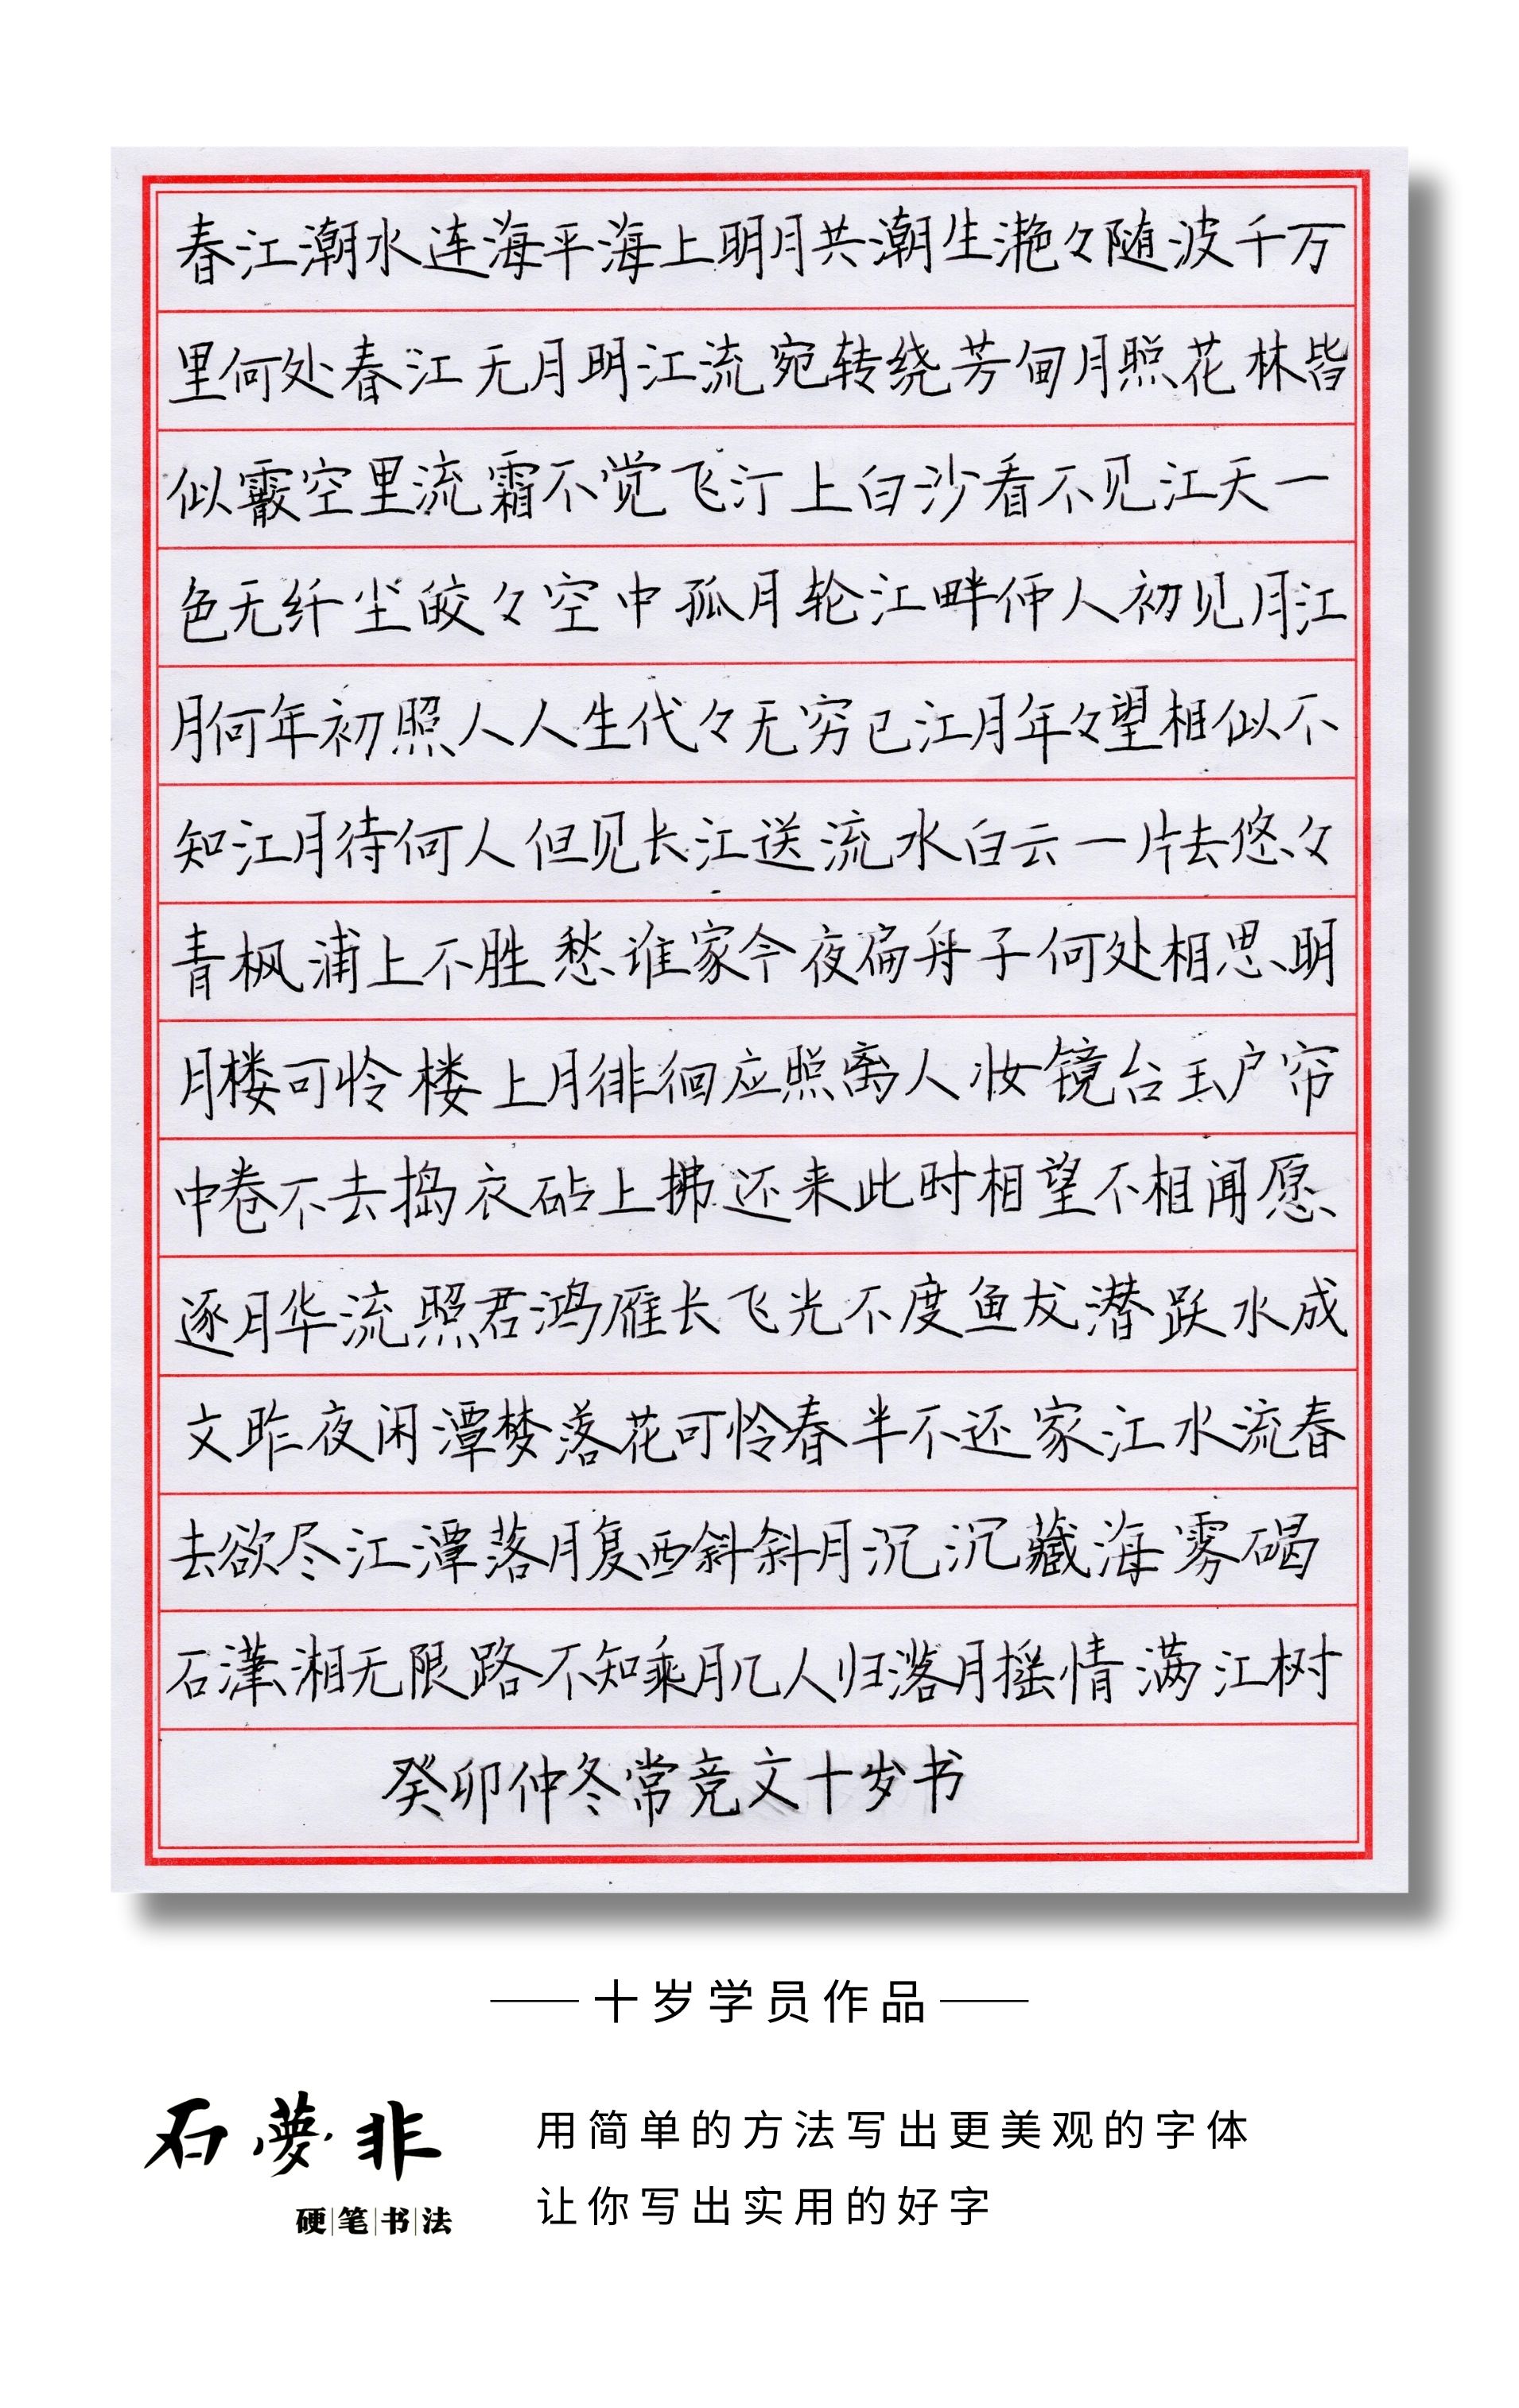 春江潮水连海平海上明月共潮生滟々随波千万
里何处春江无月明江流宛转绕芳甸月照花林皆
似霰空里流霜不觉飞汀上白沙看不见江天一
色无纤尘皎々空中孤月轮江畔何人初见月江
月何年初照人人生代々无穷已江月年々望相似不
知江月待何人但见长江送流水白云一片去悠々
青枫浦上不胜愁谁家今夜扁舟子何处相思明
月楼可怜楼上月徘徊应照离人妆镜台玉户帘
中卷不去捣衣砧上拂还来此时相望不相闻愿
逐月华流照君鸿雁长飞光不度鱼龙潜跃水成
文昨夜闲潭梦落花可怜春半不还家江水流春
去欲尽江潭落月复西斜斜月沉沉藏海雾碣
石潇湘无限路不知乘月几人归落月摇情满江树
癸卯仲冬常竞文十岁书
十岁学员作品
石夢非
硬笔书法
用简单的方法写出更美观的字体
让你写出实用的好字